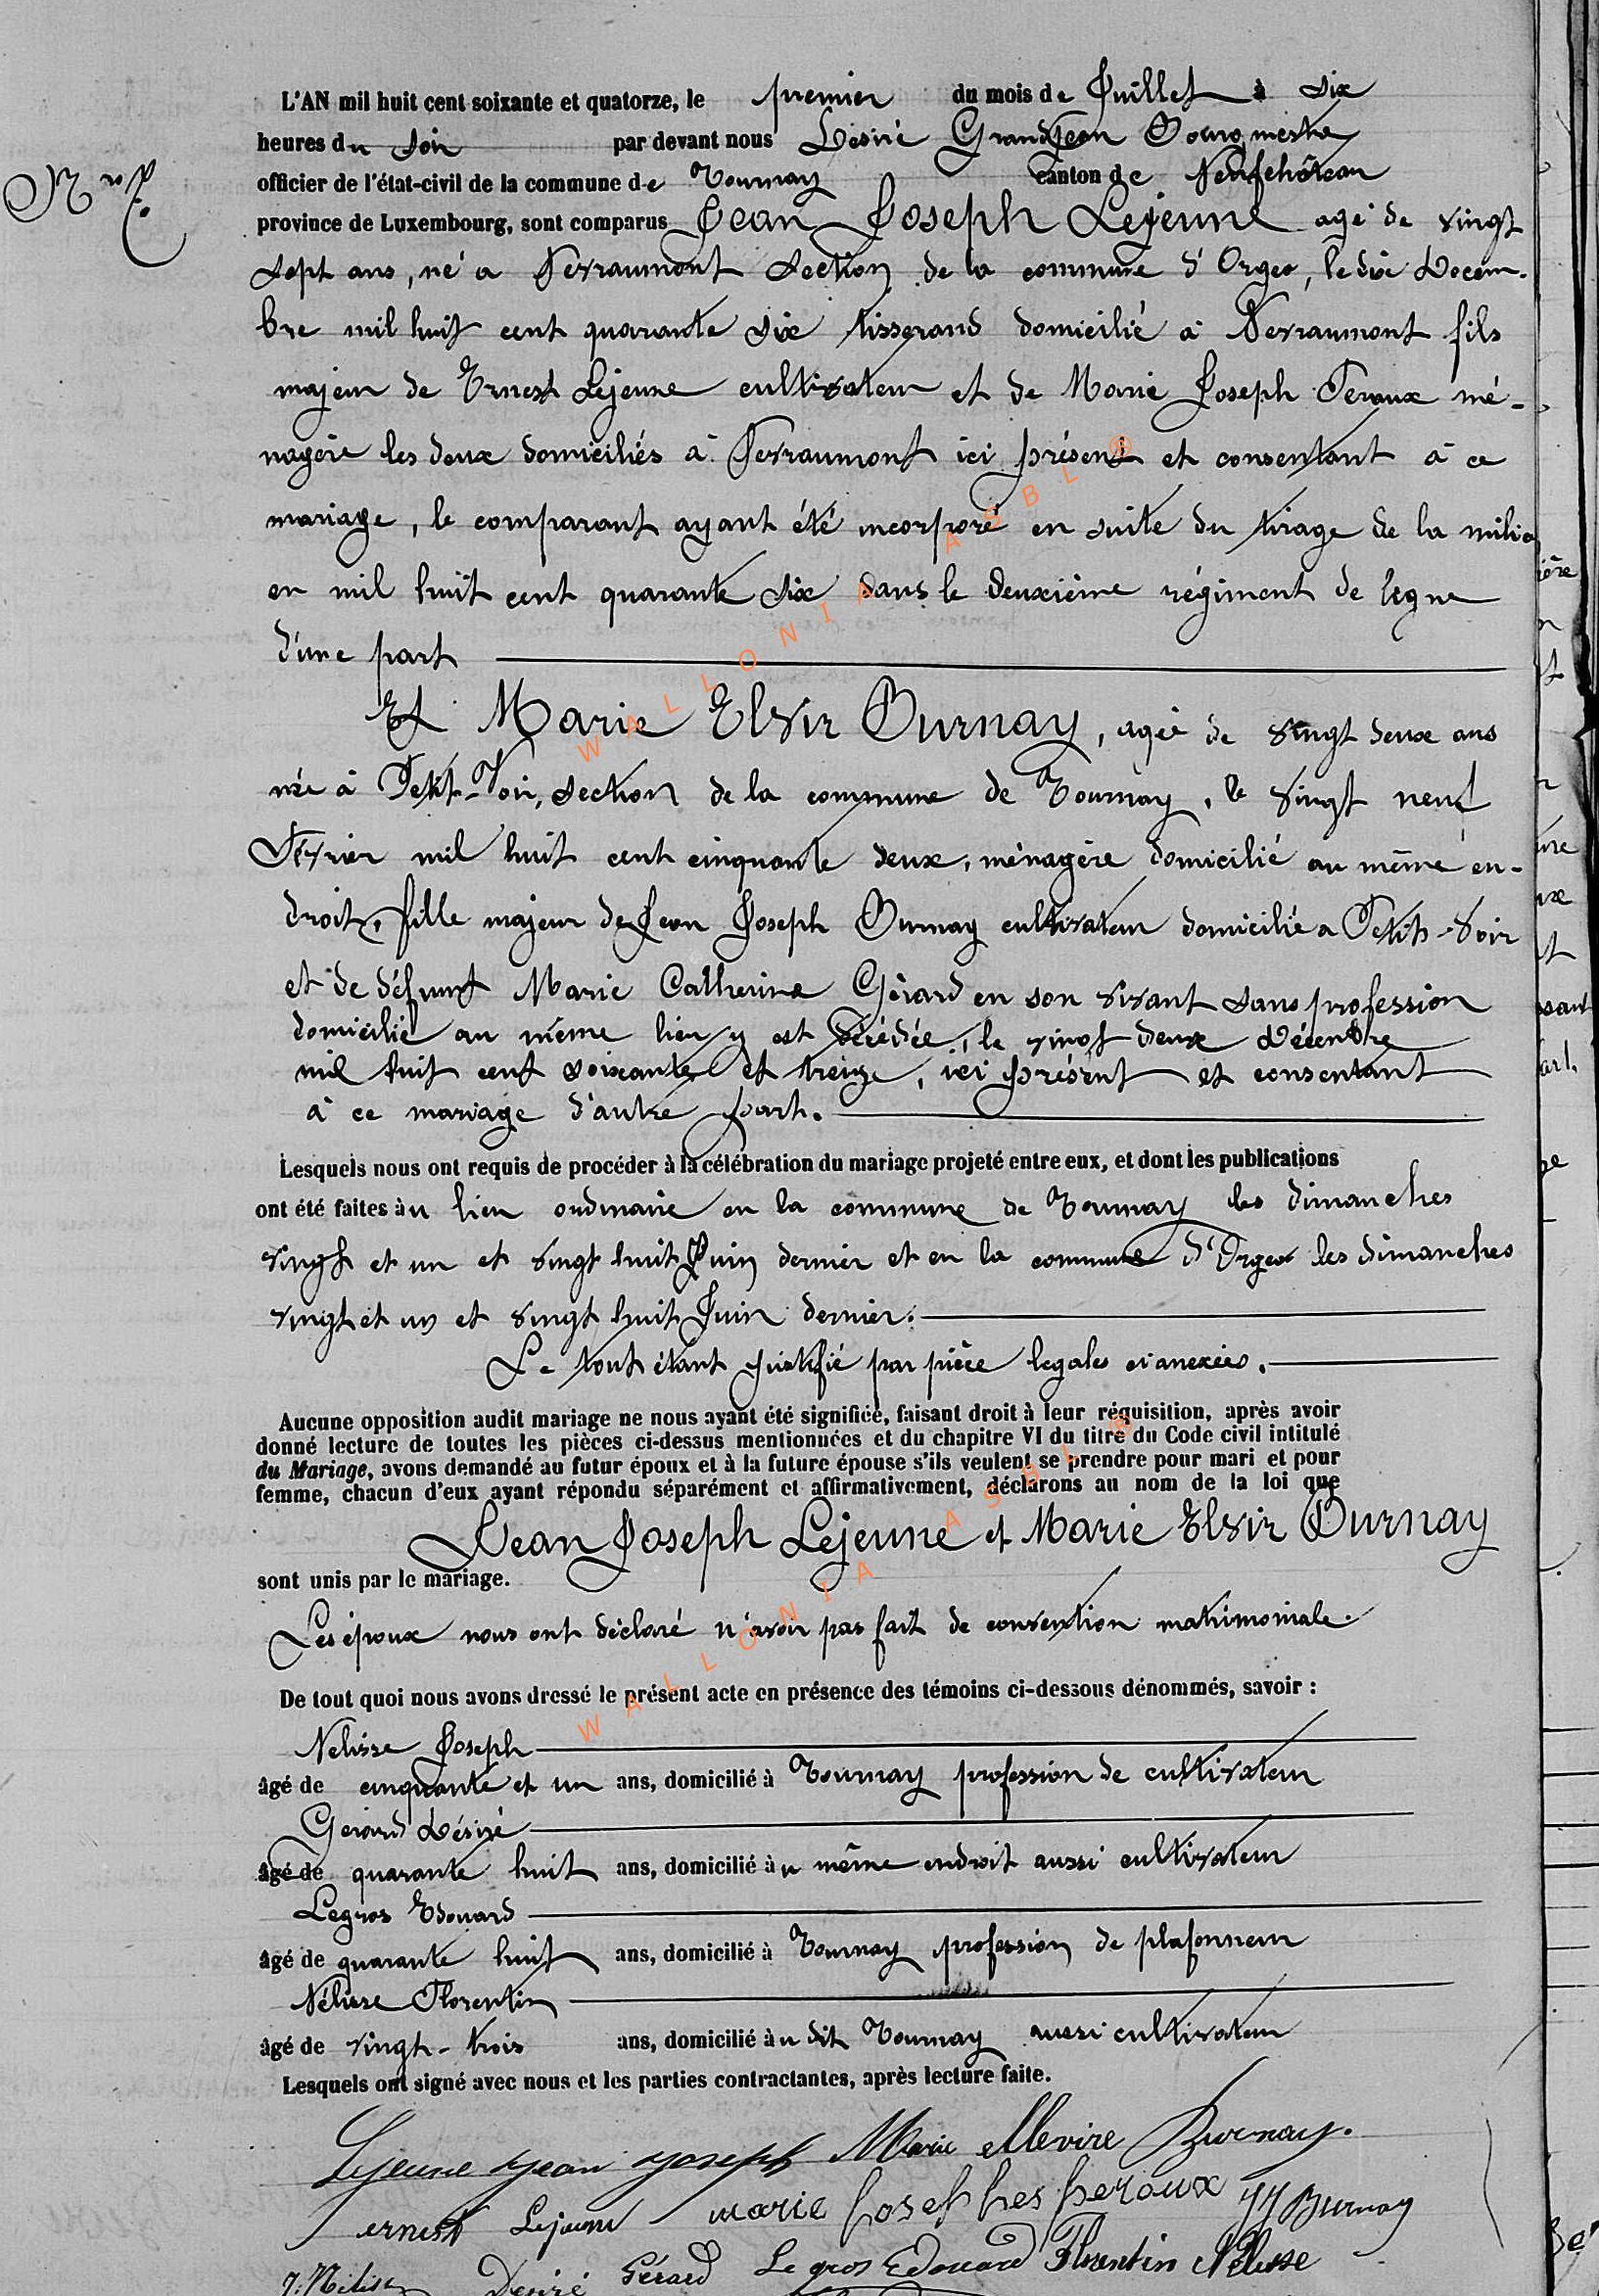 L'AN mil huit cent soixante et quatorze, le premier du mois de Juillet à six
heures du soir par devant nous Désiré Grandjean Bourgmestre
officier de l'état-civil de la commune de Tournay canton de Neufchâteau
province de Luxembourg, sont comparus Jean Joseph Lejeune agé de vingt
sept ans, né a Nevraumont section de la commune d'Orgeo, le dix Décem-
bre mil huit cent quarante six tisserand domicilié à Nevraumont fils
majeur de Ernest Lejeune cultivateur et de Marie Joseph Peroux mé-
nagère les deux domiciliés à Nevraumont ici présent et consentant à ce
mariage, le comparant ayant été incorporé en suite du tirage de la milice
en mil huit cent quarante six dans le deuxième régiment de legne
d'une part
Et Marie Elvir Burnay, agée de vingt deux ans
née à Petit-Voir, section de la commune de Tournay, le vingt neuf
Février mil huit cent cinquante deux, ménagère domicilié au même en-
droit, fille majeur de Jean Joseph Burnay cultivateur domicilié a Petit-Voir
et de défunt Marie Catherine Gérard en son vivant sans profession
domicilié au même lieu y est décédée, le vingt deux décembre
mil huit cent soixante et treize, ici présent et consentant
à ce mariage d'autre part.
Lesquels nous ont requis de procéder à la célébration du mariage projeté entre eux, et dont les publications
ont été faites àu lieu ordinaire en la commune de Tournay les dimanches
vingt et un et vingt huit Juin dernier et en la commune d'Orgeo les dimanches
vingt et un et vingt huit Juin dernier.
Le tout étant justifié par pièce legales ci anexées.
Aucune opposition audit mariage ne nous ayant été signifiée, faisant droit à leur réquisition, après avoir
donné lecture de toutes les pièces ci-dessus mentionnées et du chapitre VI du titre du Code civil intitulé
du Mariage, avons demandé au futur époux et à la future épouse s'ils veulent se prendre pour mari et pour
femme, chacun d'eux ayant répondu séparément et affirmativement, déclarons au nom de la loi que
Jean Joseph Lejeune et Marie Elvir Burnay
sont unis par le mariage.
Les époux nous ont déclaré n'avoir pas fait de convention matrimoniale.
De tout quoi nous avons dressé le présent acte en présence des témoins ci-dessous dénommés, savoir :
Nelisse Joseph
âgé de cinquante et un ans, domicilié à Tournay profession de cultivateur
Gérard Désiré
âgé de quarante huit ans, domicilié àu même endroit aussi cultivateur
Legros Edouard
âgé de quarante huit ans, domicilié à Tournay profession de plafonneur
Nélisse Florentin
âgé de vingt-trois ans, domicilié àu dit Tournay aussi cultivateur
Lesquels ont signé avec nous et les parties contractantes, après lecture faite.
Lejeune Jean Joseph Marie ellevire Burnay.
ernest Lejeune marie Josephes peroux JJ Burnay
J. Nélisse Désiré Gérard Legros Edouard Florentin Nélisse
WALLONIA ASBL ®
WALLONIA ASBL ®